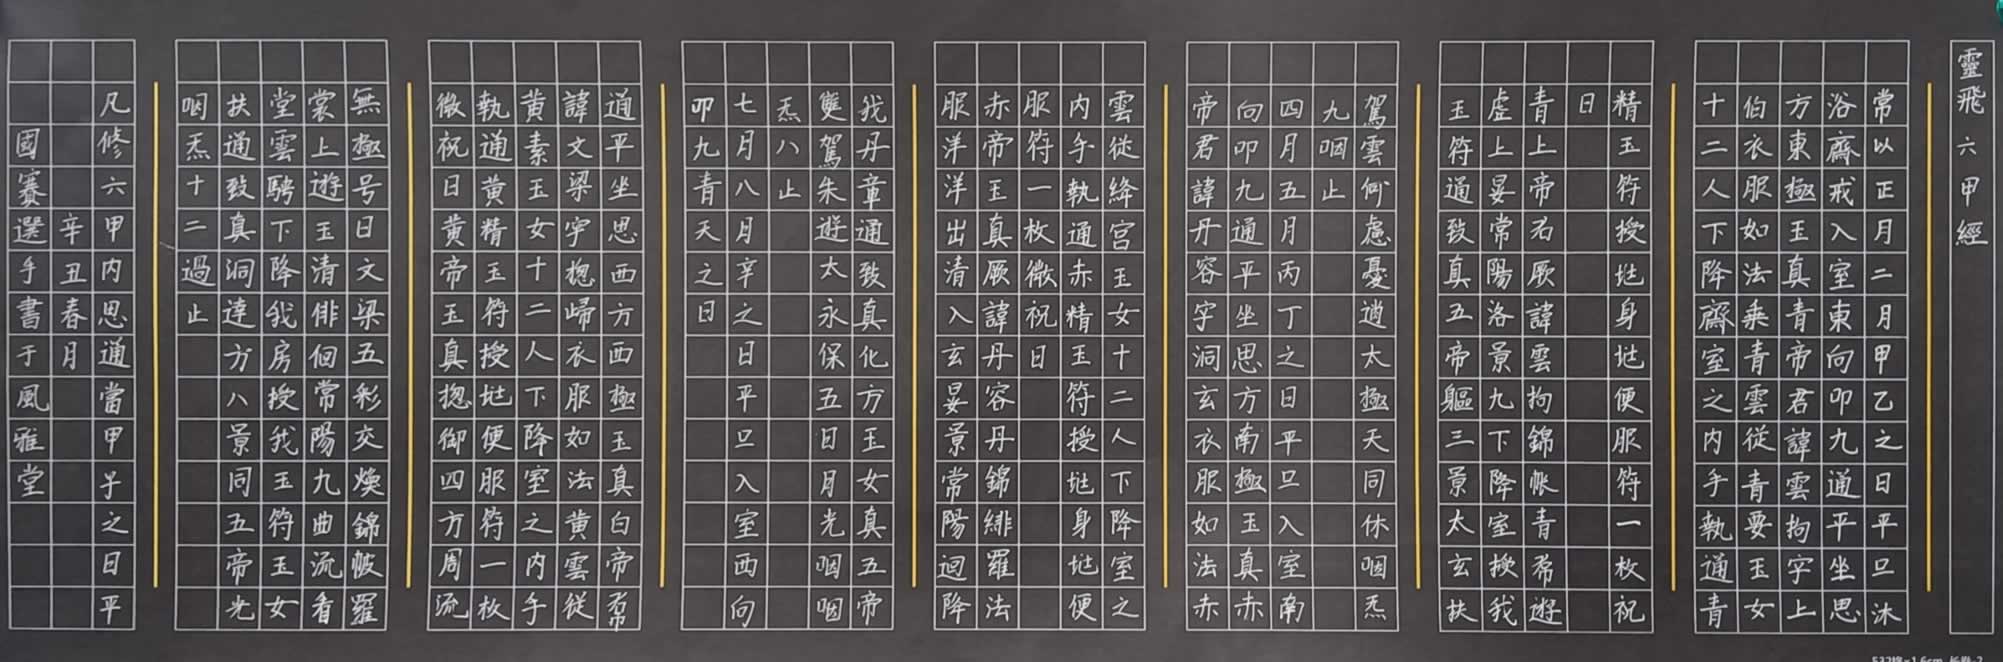 靈飛六甲經
常以正月二月甲乙之日平旦沐
浴齋戒入室東向叩九通平坐思
方東極玉真青帝君諱雲拘字上
伯衣服如法乘青雲従青要玉女
十二人下降齋室之内手執通青
精玉符授地身地便服符一枚祝
日
青上帝君厥諱雲拘錦帳青帬遊
虛上晏常陽洛景九下降室授我
玉符通致真五帝軀三景太玄扶
駕雲何慮憂遒太極天同休咽炁
九咽止
四月五月丙丁之日平旦入室南
向叩九通平坐思方南極玉真赤
帝君諱丹容字洞玄衣服如法赤
雲従絳宫玉女十二人下降室之
内手執通赤精玉符授地身地便
服符一枚微祝日
赤帝玉真厥諱丹容丹錦緋羅法
服洋洋出清入玄晏景常陽迴降
我丹章通致真化方玉女真五帝
雙駕朱遊太永保五日月光咽咽
炁八止
七月八月辛之日平旦入室西向
叩九青天之日
通平坐思西方西極玉真白帝帬
諱文梁字揔歸衣服如法黄雲従
黄素玉女十二人下降室之内手
執通黄精玉符授地便服符一枚
微祝日黄帝玉真揔御四方周流
無極号日文梁五彩交煥錦帔羅
裳上遊玉清俳佪常陽九曲流看
堂雲騁下降我房授我玉符玉女
扶通致真洞達方八景同五帝光
咽炁十二過止
凡修六甲内思通當甲子之日平
辛丑春月
國賽選手書于風雅堂
532格×1.6cm 长卷-2